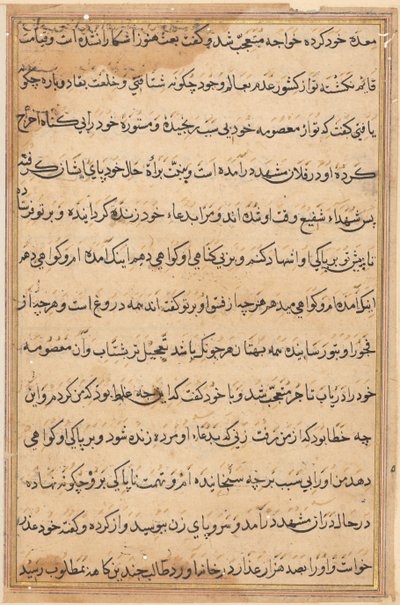 معدهٔ خود کرده خواجه متعجب شد و گفت بعث هنوز آشکارا نشده است و قیامت
قایم نکشته تو از کشور عدم بعالم وجود چکونه شتافتی و خلعت بقا دوباره چکو
یافتی گفت که تو از معصومه خود بی سبب رنجیده و مستورهٔ خود را بی کناه اخراج
کردهٔ او در فلان مشهد درآمده است و بنیت براءة حال خود پای ایشان گرفته
پس شهداء شفیع وقت او شده اند و مرا بدعاء خود زنده کردانیده و بر تو فرستاده
تا پیش تو بر پاکی او اشهاد کنم و بر بی کناهی او کواهی دهم اینک آمده ام و کواهی دهم
اینک آمده ام و کواهی میدهم هرچه از فسق او بر تو کفته اند همه دروغ است و هرچه از
فجور او بتو رسانیده همه بهتان هرچونکه باشد تعجیل تر بشتاب و آن معصومه
خود را دریاب تاجر متعجب شد و با خود کفت کداین چه غلط بود که من کردم و این
چه خطا بود که از من رفت زنی که بدعاء او مرده زنده شود و بر پاکی او کواهی
دهد من او را بی سبب بر چه سنجانیده ام و تهمت ناپاکی بر و چکونه نهاده
در حال در آن مشهد درآمد و سر و پای زن ببوسید و از کرده و کفته خود عذر
خواست و او را بصد هزار عذار در خانه آورد طالب چندین کاهه بمطلوب رسید